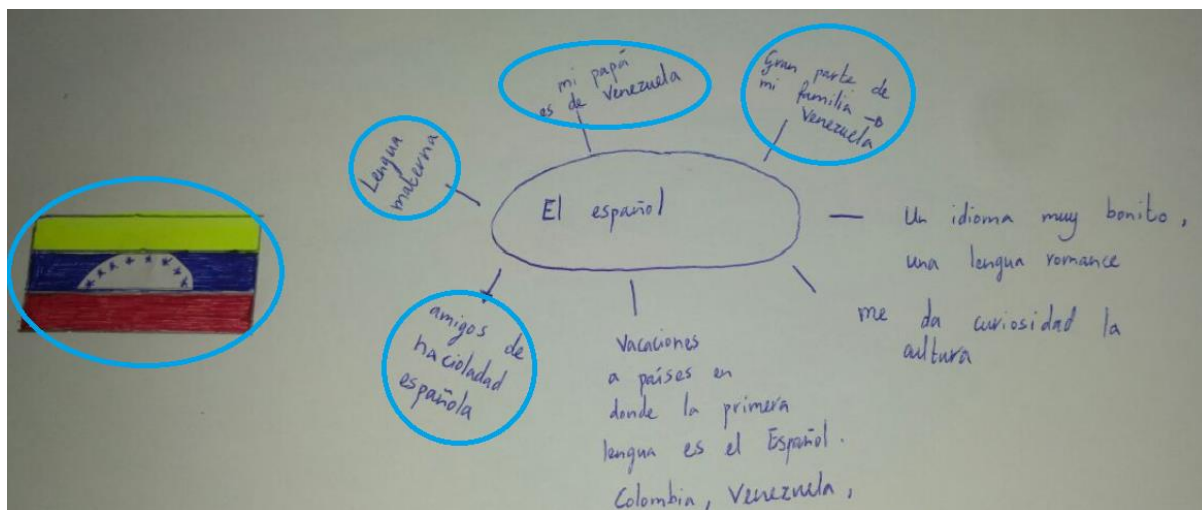 mi papá
es de Venezuela
Gran parte de
mi familia →
Venezuela
Lengua
materna
El español
Un idioma muy bonito,
una lengua romance
me da curiosidad la
cultura
amigos de
nacioladad
española
Vacaciones
a países en
donde la primera
lengua es el Español.
Colombia, Venezuela,